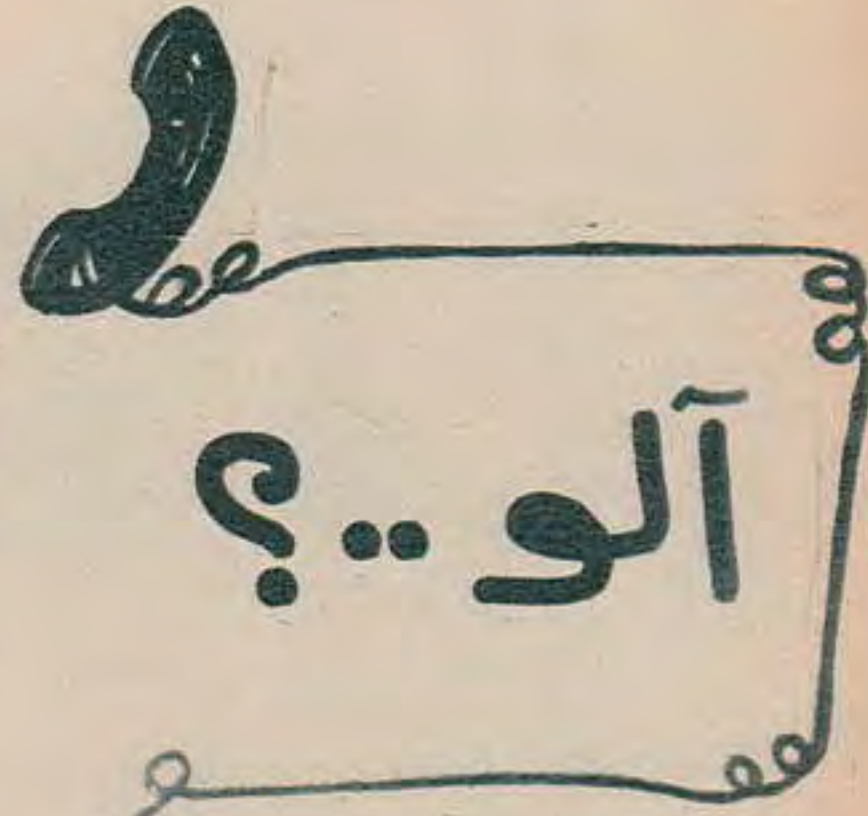 آلو ..؟